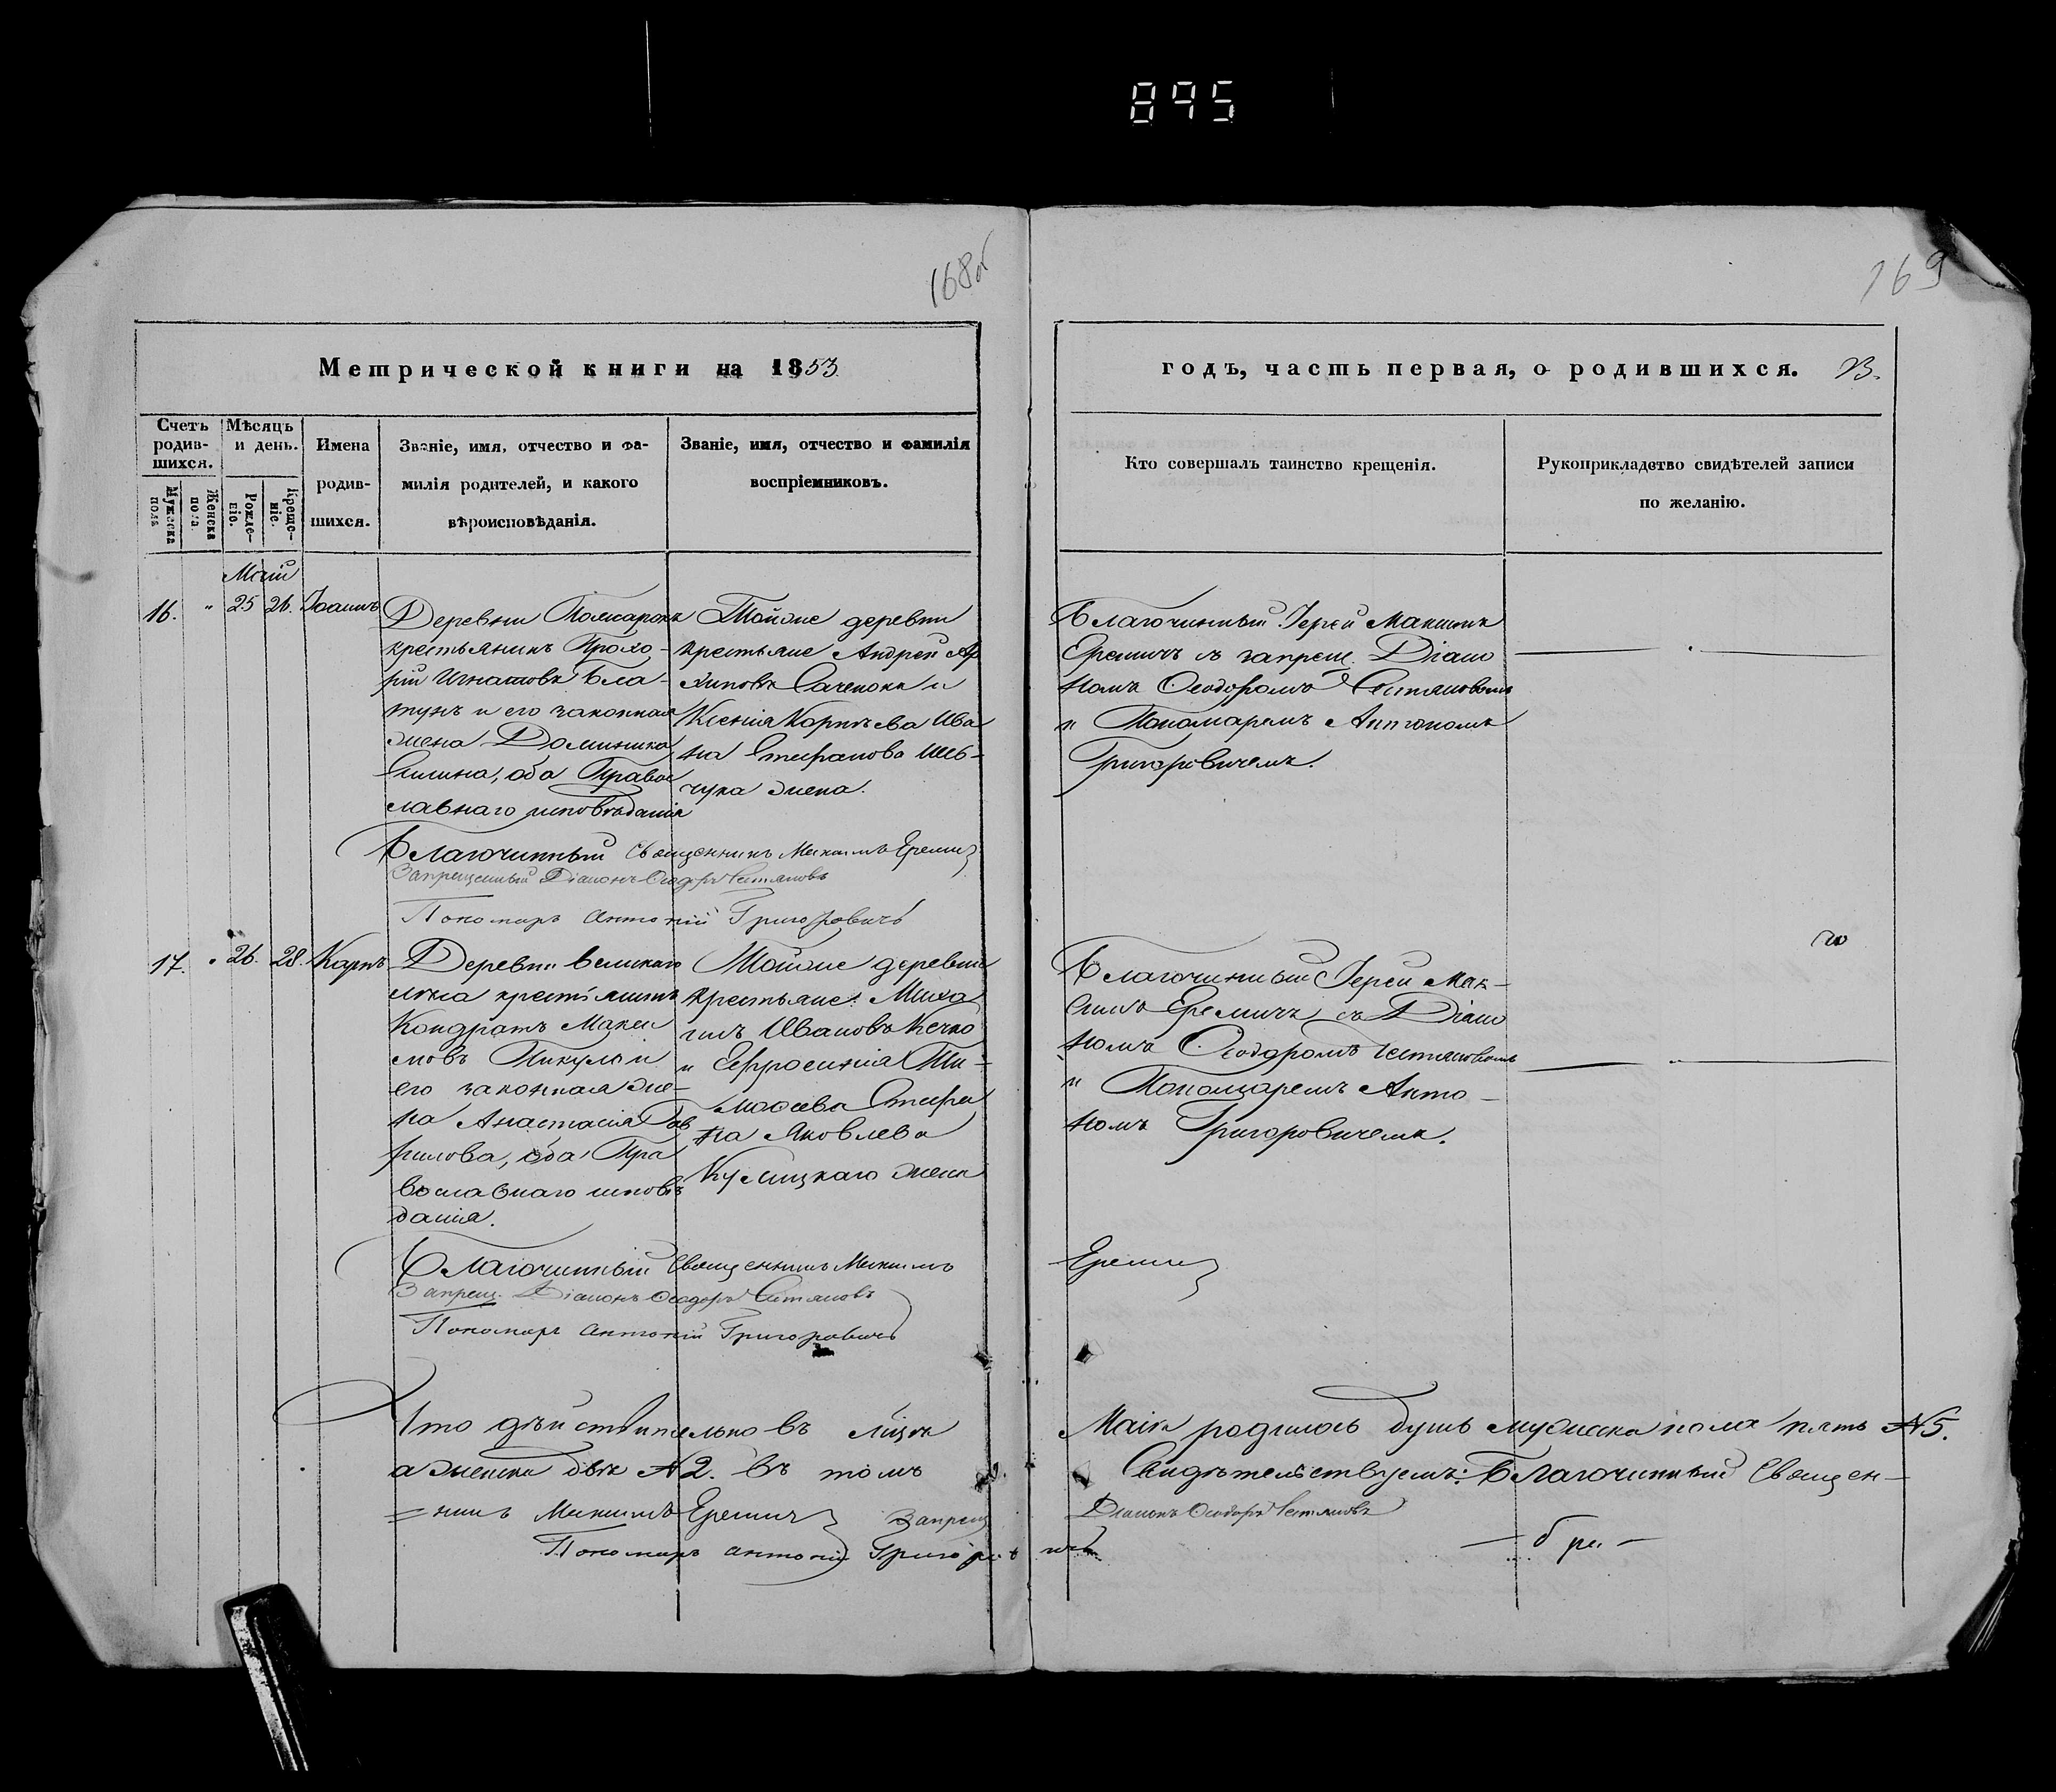 895
168об
169
Метрической книги на 1853
годъ, часть первая, о родившихся.
Счетъ родив-
шихся.
Мужеска пола.
Женска пола.
Мѣсяцъ
и день.
Рожде-
ніе.
Креще-
ніе.
Имена
родив-
шихся.
Званіе, имя, отчество и фа-
милія родителей, и какого
вѣроисповѣданія.
Званіе, имя, отчество и фамилія
воспріемниковъ.
Кто совершалъ таинство крещенія.
Рукоприкладство свидѣтелей записи
по желанію.
Маій
16. " 25 26. Іоаннъ
Деревни
крестьянинъ Прохо-
рій Игнатовъ Бла-
тунъ и его законная
жена Доминика
оба Правос
лавнаго исповѣданія
Тойже деревни
крестьяне Андрей Ар
хиповъ Саченокъ и
Ксенія Корнѣева Ива
на Стефанова Шев-
чука жена.
Благочинный Іерей Максимъ
Еремичъ съ запрещ. Діако
номъ Ѳеодоромъ
и Пономаремъ Антономъ
Григоровичемъ.
Благочинный Священникъ Максимъ Еремичъ
Запрещенный Діаконъ Ѳеодоръ
Пономарь Антоній Григоровичъ
17. " 26. 28. Карпъ
Деревни Великаго
крестьянинъ
Кондратъ Макси
мовъ Пикула и
его законная же-
на Анастасія Гав
рилова, оба Пра
вославнаго исповѣ
данія.
Тойже деревни
крестьяне: Миха
илъ Ивановъ
и Евфросинія Ти-
моѳеева Стефа
на Яковлева
жена
Благочинный Іерей Мак-
симъ Еремичъ съ Діако
номъ Ѳеодоромъ
и Пономаремъ Анто-
номъ Григоровичемъ.
Благочинный Священникъ Максимъ Еремичъ
Запрещ. Діаконъ Ѳеодоръ
Пономарь Антоній Григоровичъ
Что дѣйствительно въ Маіи родилось душъ мужеска пола пять №5.
а женска двѣ №2. въ томъ Свидѣтельствуемъ: Благочинный Священ-
=никъ Максимъ Еремичъ Запрещ Діаконъ Ѳеодоръ
Пономарь Антоній Григоровичъ